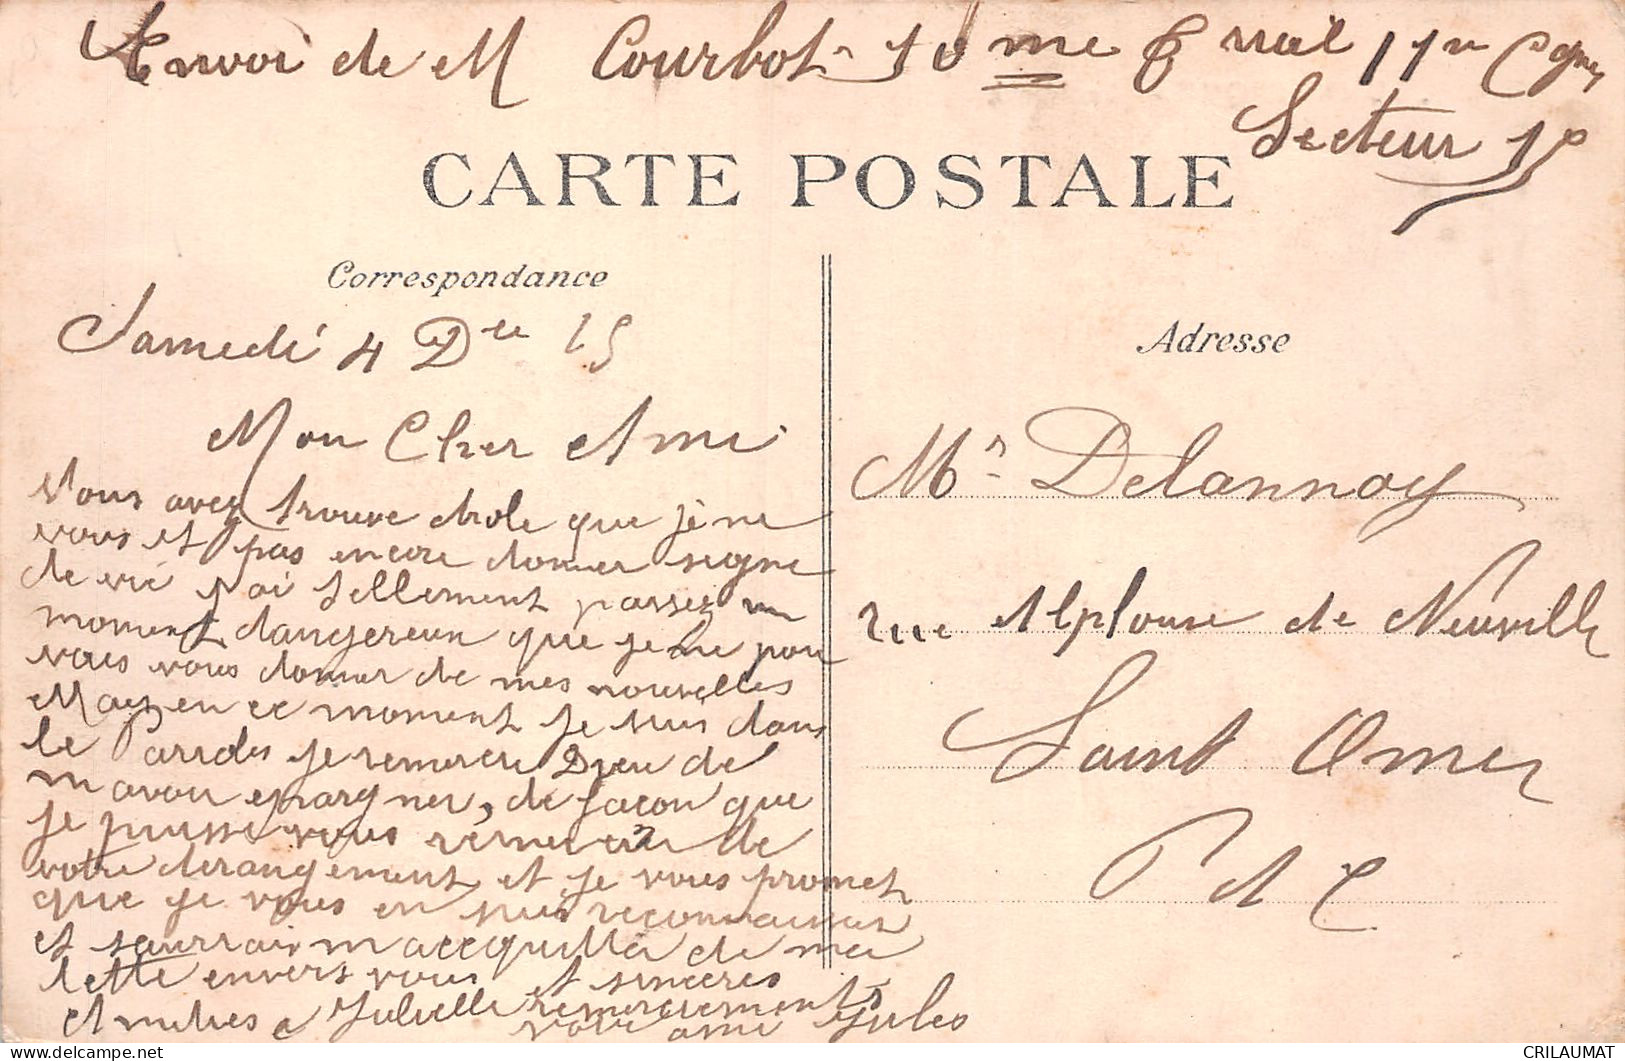 Envoi de M Courbot 10me 11m Cgnie
Secteur 15
CARTE POSTALE
Correspondance
Samedi 4 Dce 15
Mon Cher Ami
Vous avez trouve drole que je ne
vous et pas encore donner signe
de vie j'ai tellement passez un
moment dangereux que je ne pou
vais vous donner de mes nouvelles
Mais en ce moment je suis dans
le je remercie Dieu de
mavoir epargner, de facon que
je puisse vous remercier de
votre derangement et je vous promet
que je vous en suis reconnaissant
et saurrais macquitter de ma
dette envers vous et sinceres
Amities a Julielle remerciements
votre ami Jules
Adresse
Mr Delannoy
rue Alphonse de Neuville
Saint Omer
P d C
CRILAUMAT